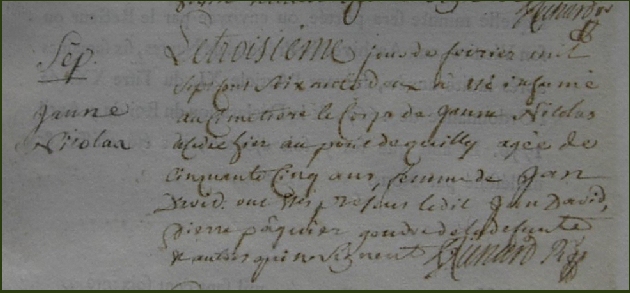 Sep.
Janne
Nicolas
Le troisieme jour de fevrier mil
sept cent soixante dix a été inhumé
au cimetiere le Corps de Janne Nicolas
au pont de quilly agée de
Cinquante Cinq ans, femme de Jan
David. ont été presens ledit Jan David,
pierre pâquier gendre de la defunte
& autres qui ne signent